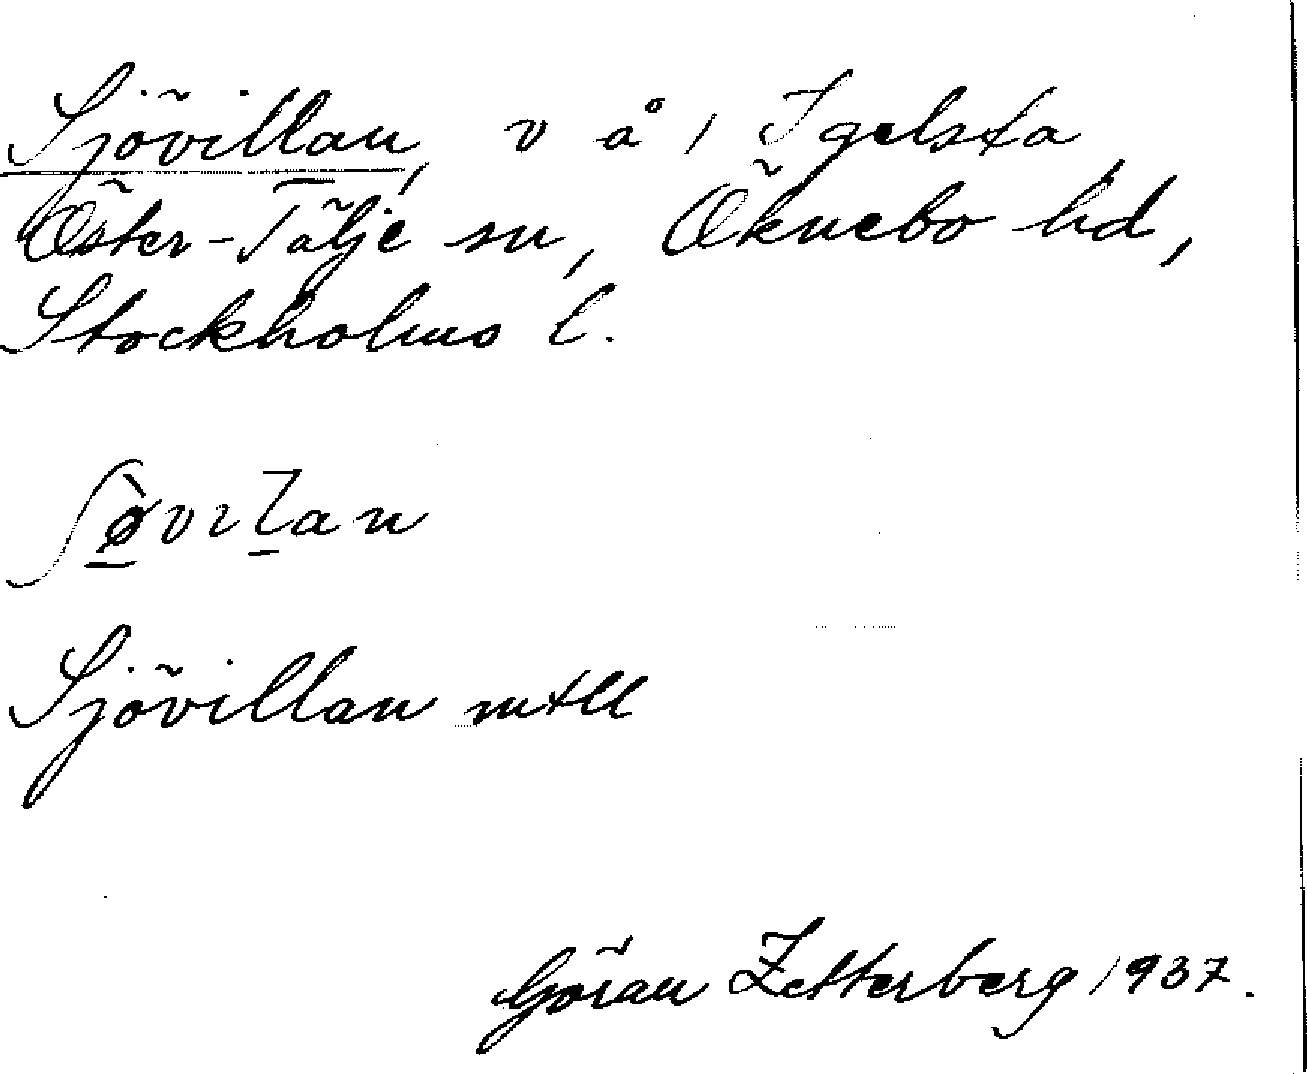 Sjövillan, v å 1 Igelsta,
Öster-Tälje sn, Öknebo hd,
Stockholms l.
Sjövillan mtll
Göran Zetterberg 1937.